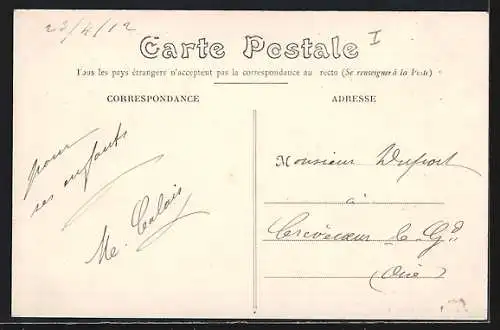 23/4/12
Carte Postale
I
Tous les pays étrangers n'acceptent pas la correspondance au recto (Se renseigner à la Poste)
CORRESPONDANCE
ADRESSE
pour
ses enfants
Me. Calais
Monsieur Dufront
à
Crèvecœur le Gd
(Oise)